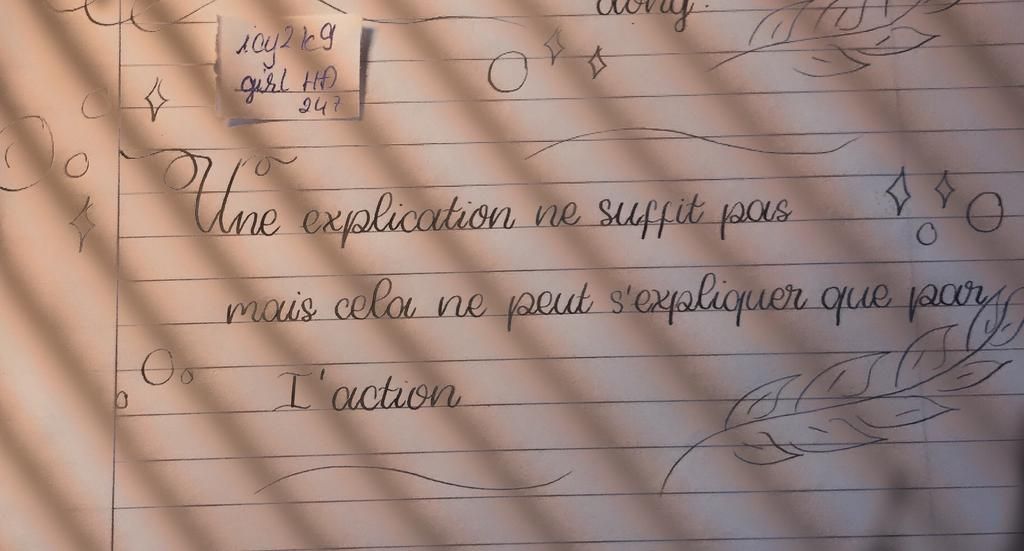 along.
1cy2kg
girl HD
247
Une explication ne suffit pas
mais cela ne peut s'expliquer que par
I'action